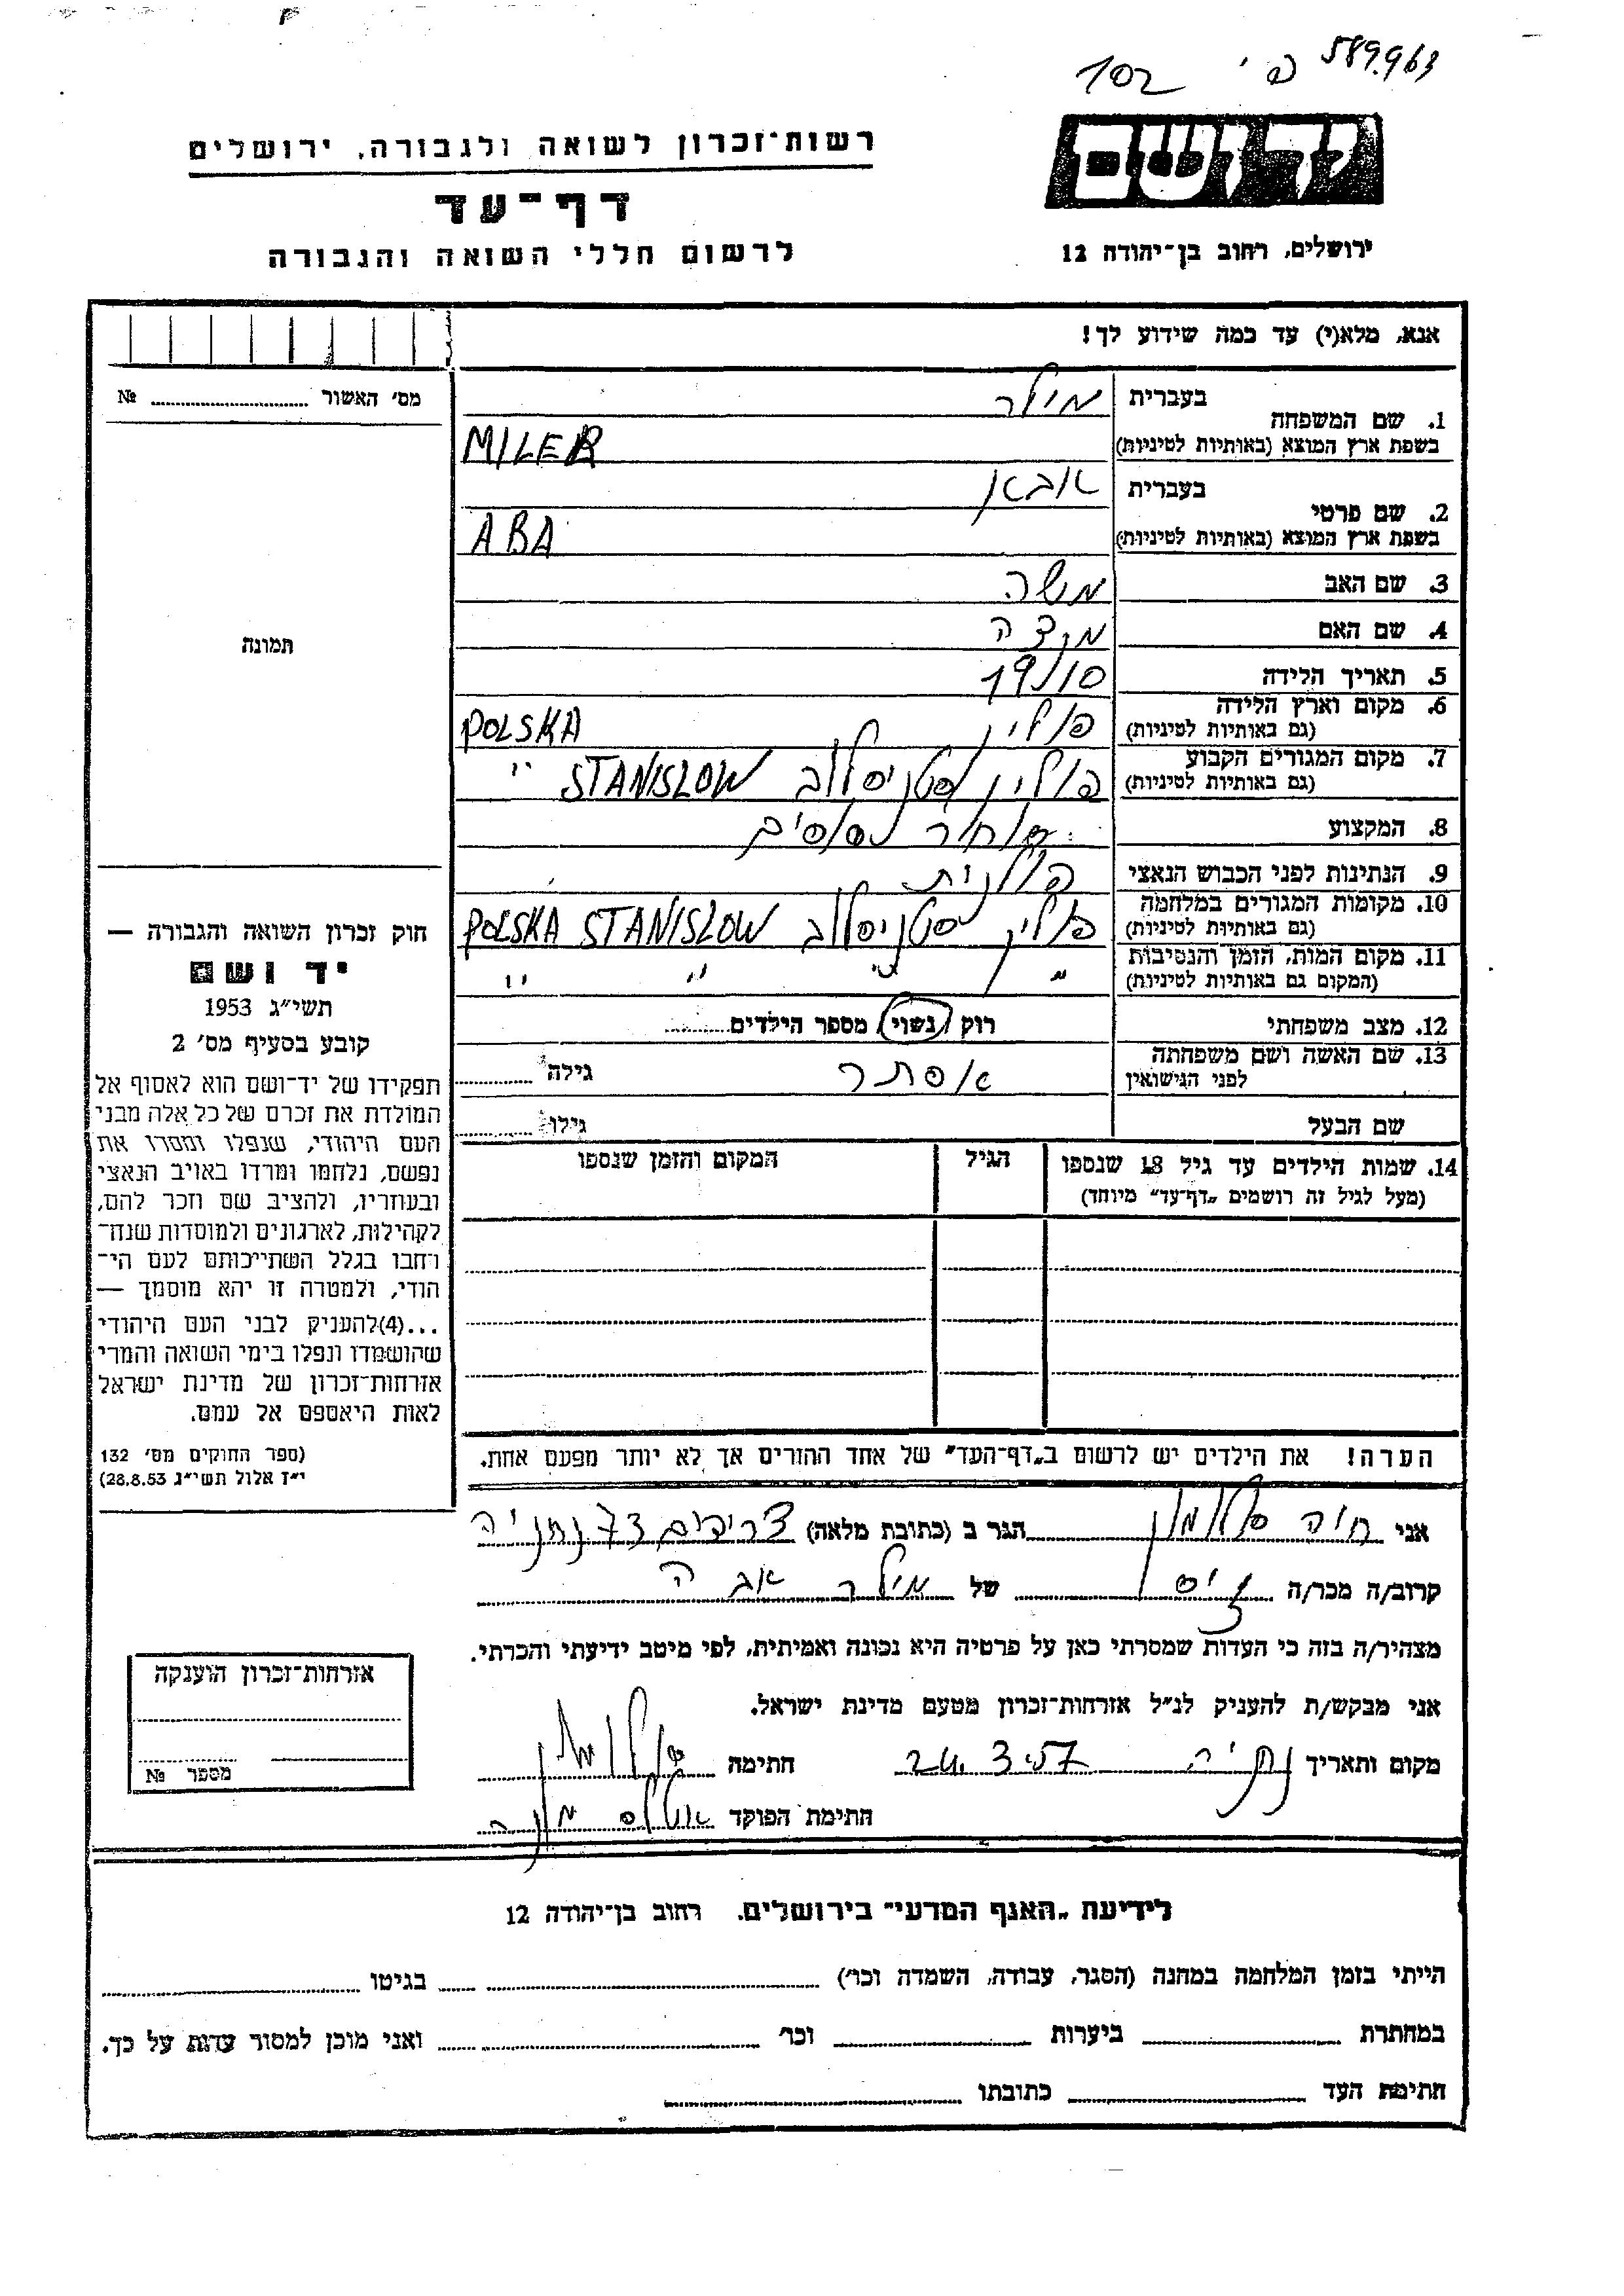 589.963
פ' 102
יד ושם
רשות־זכרון לשואה ולגבורה, ירושלים
דף־עד
ירושלים, רחוב בן־יהודה 12
לרשום חללי השואה והגבורה
אנא, מלא(י) עד כמה שידוע לך!
מס' האשור № ........
1. שם המשפחה בעברית מילר
בשפת ארץ המוצא (באותיות לטיניות) MILER
2. שם פרטי בעברית אבא
בשפת ארץ המוצא (באותיות לטיניות) ABA
3. שם האב משה
4. שם האם
תמונה
5. תאריך הלידה
6. מקום וארץ הלידה (גם באותיות לטיניות) פולין POLSKA
7. מקום המגורים הקבוע (גם באותיות לטיניות) פולין סטניסלוב STANISLOW "
8. המקצוע סוחר סוסים
9. הנתינות לפני הכבוש הנאצי פולנית
10. מקומות המגורים במלחמה (גם באותיות לטיניות) פולין סטניסלוב POLSKA STANISLOW
11. מקום המות, הזמן והנסיבות (המקום גם באותיות לטיניות) " " " "
12. מצב משפחתי רוק / נשוי / מספר הילדים........
13. שם האשה ושם משפחתה לפני הנישואין אסתר גילה ........
שם הבעל גילו ........
14. שמות הילדים עד גיל 18 שנספו הגיל המקום והזמן שנספו
(מעל לגיל זה רושמים „דף־עד" מיוחד)
חוק זכרון השואה והגבורה —
יד ושם
תשי"ג 1953
קובע בסעיף מס' 2
תפקידו של יד־ושם הוא לאסוף אל
המולדת את זכרם של כל אלה מבני
העם היהודי, שנפלו ומסרו את
נפשם, נלחמו ומרדו באויב הנאצי
ובעוזריו, ולהציב שם וזכר להם,
לקהילות, לארגונים ולמוסדות שנח־
רבו בגלל השתייכותם לעם הי־
הודי, ולמטרה זו יהא מוסמך —
...(4) להעניק לבני העם היהודי
שהושמדו ונפלו בימי השואה והמרי
אזרחות־זכרון של מדינת ישראל
לאות היאספם אל עמם.
(ספר החוקים מס' 132
י"ז אלול תשי"ג 28.8.53)
הערה! את הילדים יש לרשום ב„דף־העד" של אחד ההורים אך לא יותר מפעם אחת.
אני חיה סלומון הגר ב (כתובת מלאה) צריפים 73 נתניה
קרוב/ה מכר/ה גיס של מילר אבה
מצהיר/ה בזה כי העדות שמסרתי כאן על פרטיה היא נכונה ואמיתית, לפי מיטב ידיעתי והכרתי.
אני מבקש/ת להעניק לנ"ל אזרחות־זכרון מטעם מדינת ישראל.
מקום ותאריך נתניה 24.3.57 חתימה סלומון
חתימת הפוקד
אזרחות־זכרון הוענקה
מספר №
לידיעת „האגף המדעי" בירושלים. רחוב בן־יהודה 12
הייתי בזמן המלחמה במחנה (הסגר, עבודה, השמדה וכו') ........ בגיטו ........
במחתרת ........ ביערות ........ וכו' ........ ואני מוכן למסור עדות על כך.
חתימת העד ........ כתובתו ........